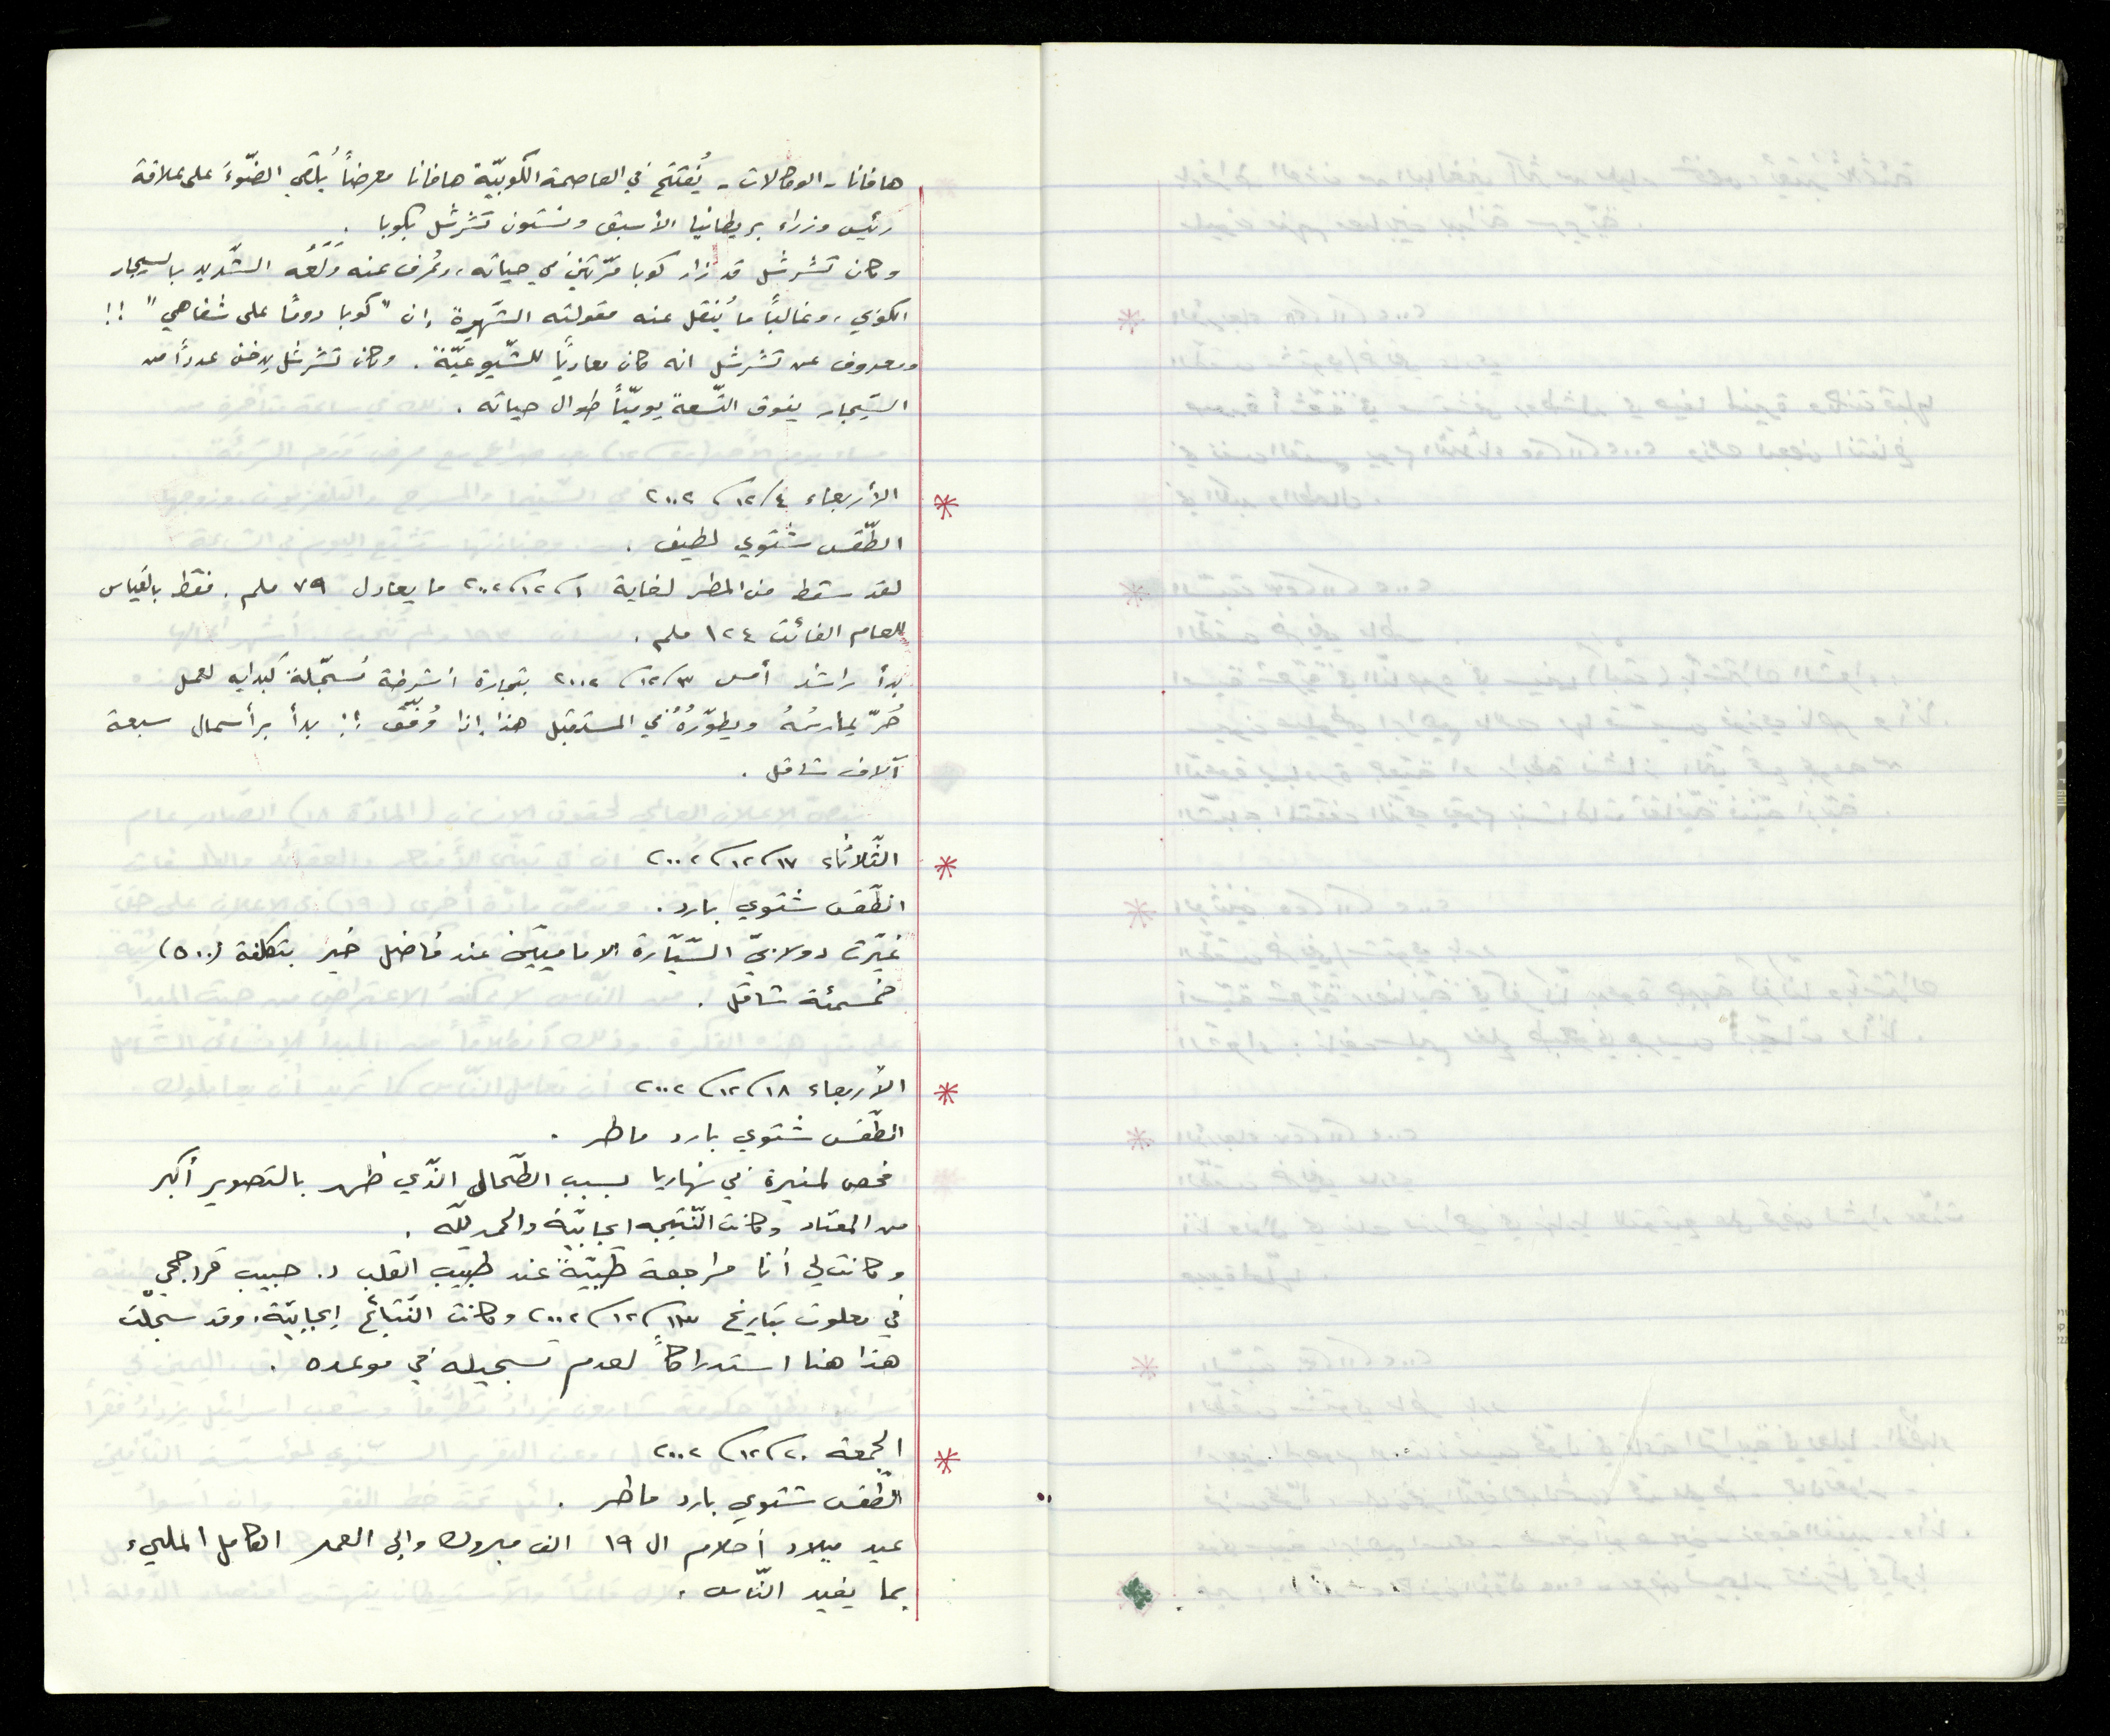 هافانا - الوكالات - يُفتتح في العاصمة الكوبيّة هافانا معرضاً يُلقي الضّوءَ على علاقة
رئيس وزراء بريطانيا الأسبق ونستون تشرشل بكوبا .
وكان تشرشل قد زار كوبا مرّتين في حياته، وعُرف عنه وَلَعُه الشّديد بالسيجار
الكوبي، وغالباً ما يُنقل عنه مقولته الشّهيرة إن "كوبا دومًا على شفاهي" !!
ومعروف عن تشرشل انه كان معاديًا للشّيوعيّة . وكان تشرشل يدخن عدداً من
السّيجار يفوق التّسعة يوميّاً طوال حياته .
* الأربعاء ٤/١٢/٢٠٠٢
الطّقس شتوي لطيف .
لقد سقط من المطر لغاية ١/١٢/٢٠٠٢ ما يعادل ٧٩ ملم . فقط بالقياس
للعام الفائت ١٢٤ ملم .
بدأ راشد أمس ٣/١٢/٢٠٠٢ بتجارة أشرطة مُسجّلة كبدايه لعمل
حُرّ يمارسُهُ ويطوّرُهُ في المستقبل هذا إذا وُفِّقَ !! بدأ برأسمال سبعة
آلاف شاقل .
* الثّلاثاء ١٧/١٢/٢٠٠٢
الطّقس شتويّ بارد .
غيّرت دولابيّ السّيّارة الاماميين عند فاضل خير بتكلفة (٥٠٠)
خمسمئة شاقل .
* الأربعاء ١٨/١٢/٢٠٠٢
الطّقس شتوي بارد ماطر .
فحص لمنيرة في نهاريا بسبب الطّحال الذّي ظهر بالتصوير أكبر
من المعتاد وكانت النّتيجه ايجابيّة والحمد للّه .
وكانت لي أنا مراجعة طبّيّة عند طبيب القلب د. حبيب قراحجي
في معلوت بتاريخ ١٣/١٢/٢٠٠٢ وكانت النّتائج إيجابيّة، وقد سجّلت
هذا هنا استدراكاً لعدم تسجيله في موعده .
* الجمعة ٢٠/١٢/٢٠٠٢
الطّقس شتوي بارد ماطر .
عيد ميلاد أحلام ال ١٩ الف مبروك والى العمر الكامل المليء
بما يفيد النّاس .